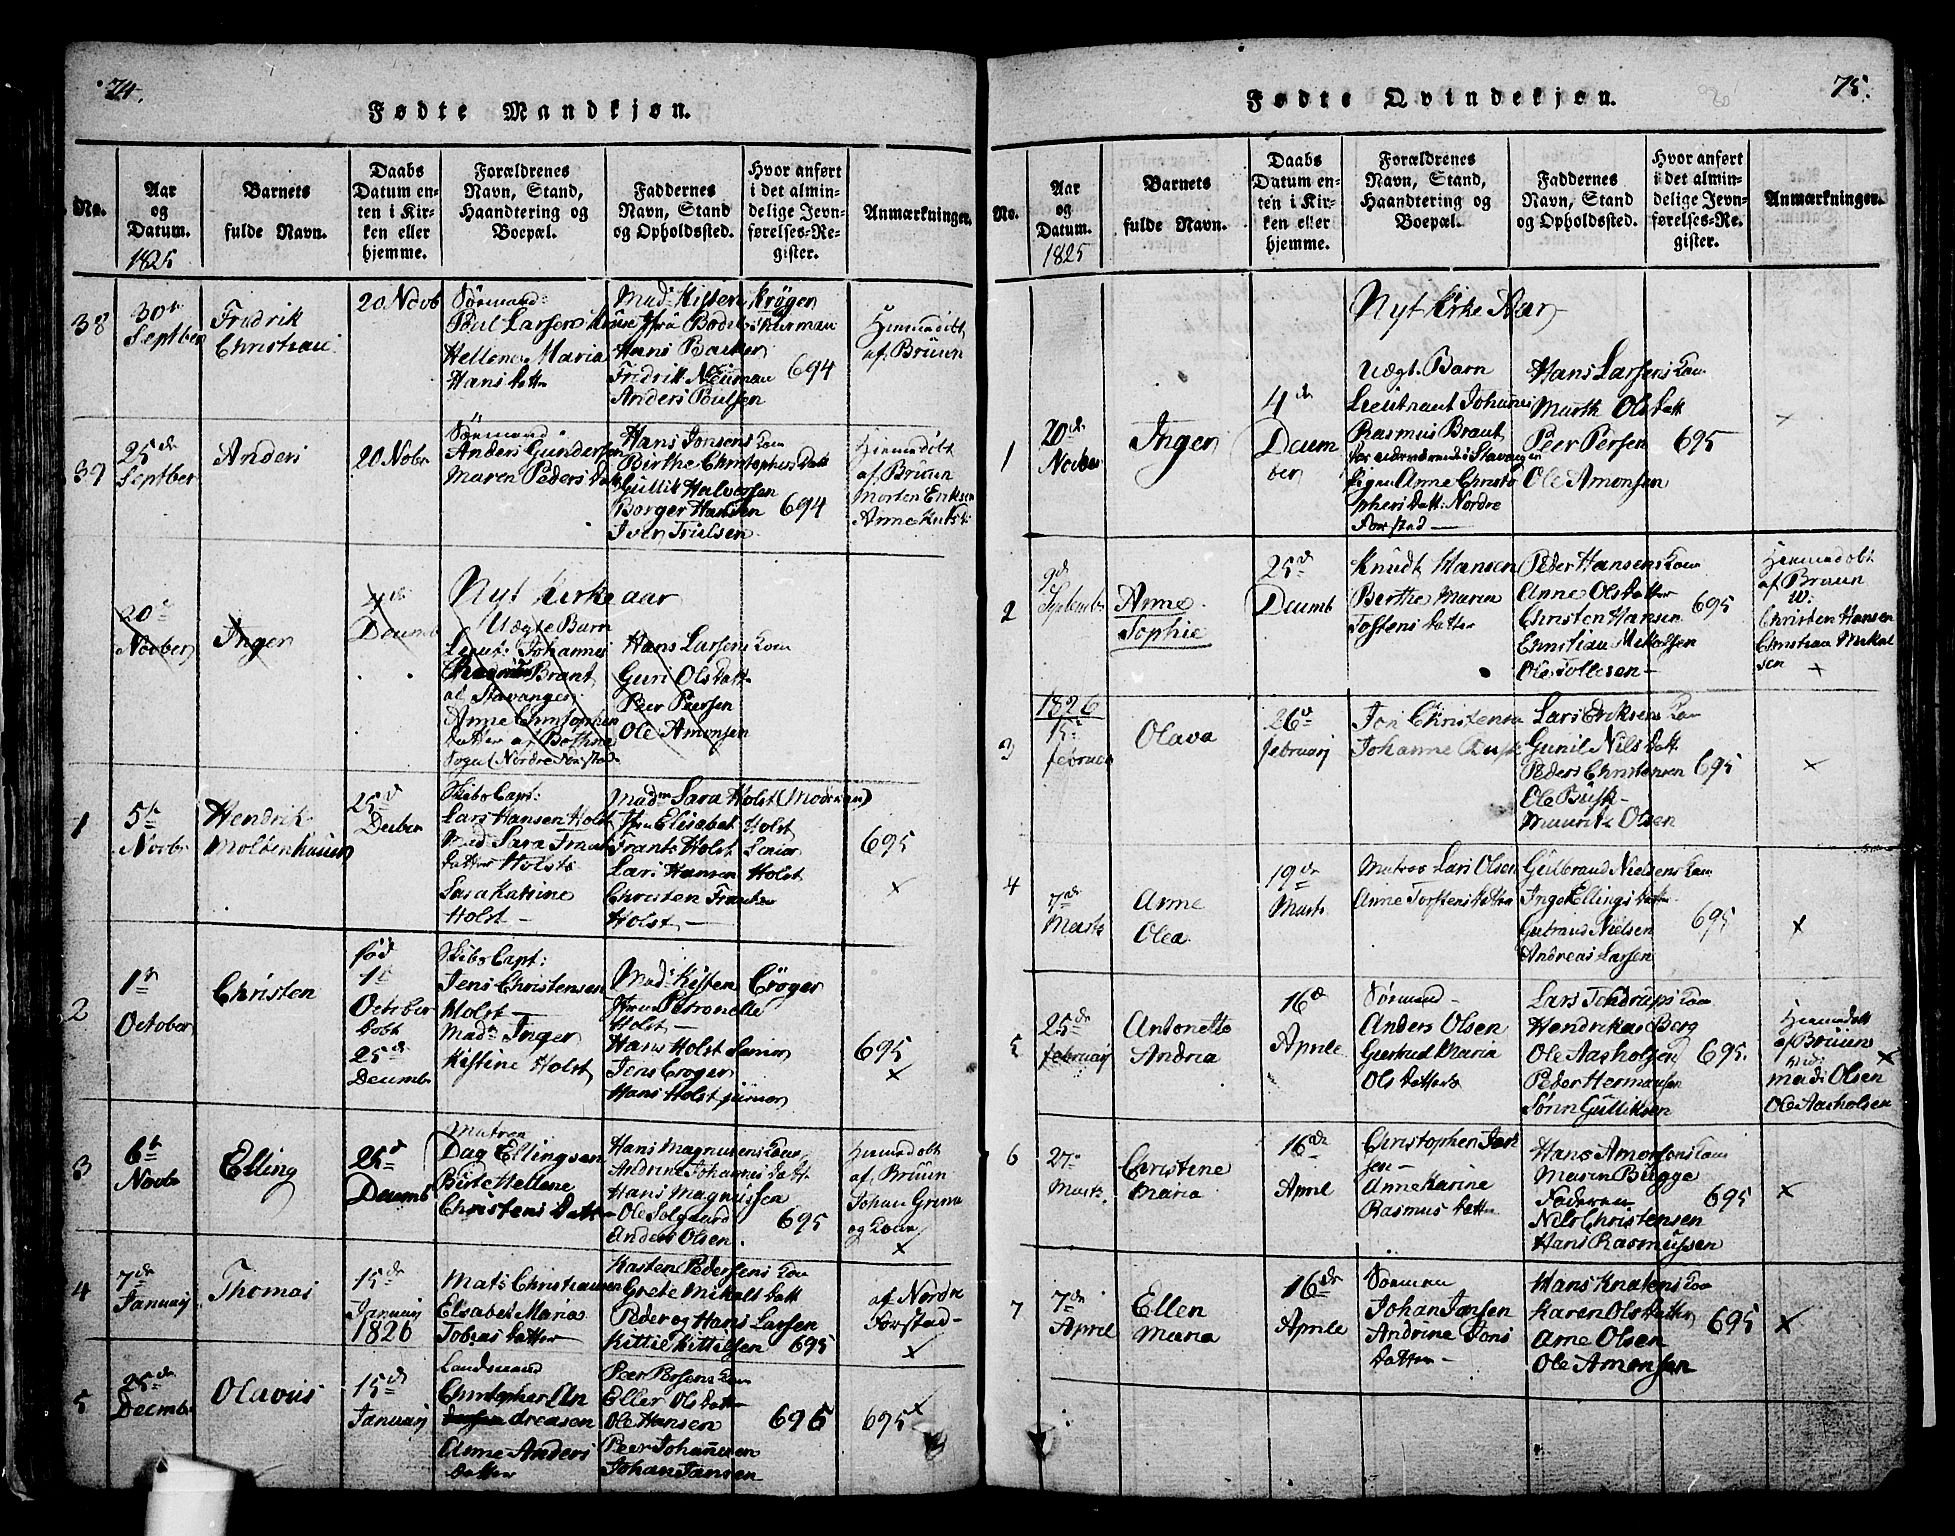 74.
Fødte Mandkjøn.
No.
Aar og Datum.
1825
Barnets fulde Navn.
Daabs Datum enten i Kirken eller hjemme.
Forældrenes Navn, Stand, Haandtering og Boepæl.
Faddernes Navn, Stand og Opholdssted.
Hvor anført i det almindelige Jevnførelses-Register.
Anmærkninger.
38
30te Septber
Fredrik
Christian
20 Novb
Sørmand
Poul Larsen
Hellene Maria
Hans Datter
Mad: Kisten Krøger
Hans Backer
Fredrik Neuman
Anders Poulsen
694
Hiemmedøbt
af Brüun
39
25de Septber
Anders
20 Nobr
Sørmand
Anders Gundersen
Maren Peders Datt
Hans Jonsens Kone
Birthe Christophers Datt
Gullik Halversen
Borger Hansen
Iver Trulsen
694
Hiemmedøbt
af Brüun
Morten Eriksen
Anne Knuts D:
Nyt Kirkeaar
20de Novber
Inger
4de Decemb
Uægte Barn
Lieut: Johannes
Brant
af Stavanger
Anne Christophers
datter af Bothne
Sogn (Nordre Forstad
Hans Larsens Kone
Guri Ols Datt
Peer Peersen
Ole Amonsen
1
5te Novbr
Hendrik
Moldenhauer
25d Decber
Skibs Capt:
Lars Hansen Holst
Mad: Sara Frants
datter Holst
Sara Katrine
Holst
Madm Sara Holst (Moderen)
Jfru Elisabet Holst
Frants Holst Senior
Lars Hansen Holst
Christen Frantsen
Holst
695
x
2
1ste October
Christen
fød
1te October
døbt
25de Decemb
Skibs Capt:
Jens Christensen
Holst
Madm Inger
Kistine Holst
Mad: Kisten Crøger
Jfru Petronelle
Holst
Hans Holst Senior
Jens Crøger
Hans Holst junior
695
x
3
6te Novb
Elling
25d Decemb
Matros
Dag Ellingsen
Birte Hellene
Christens Datter
Hans Magnusens Kone
Andrine Johannes Datt
Hans Magnussen
Ole Solgaard
Anders Olsen.
695
Hiemmedøbt
af Brüun
Johan Grim
og Kone
x
4
7de Januarj
Thomas
15de Januarj
1826
Mats Christiansen
Elsabet Maria
Tobias datter
Kasten Pedersens Kone
Grete Mikels Datt
Peder og Hans Larsen
Kittil Kittilsen
695
af Nordre
Forstad
x
5
25de Decmbr
Olavus
15de Januarj
Landmand
Christopher An
dreasen
Anne Anders
datter
Peer Persens Kone
Eller Ols Datter
Ole Hansen
Peer Johannesen
Johan Jansen
695
695 x
75.
Fødte Qvindekjøn.
No.
Aar og Datum.
1825
Barnets fulde Navn.
Daabs Datum enten i Kirken eller hjemme.
Forældrenes Navn, Stand, Haandtering og Boepæl.
Faddernes Navn, Stand og Opholdssted.
Hvor anført i det almindelige Jevnførelses-Register.
Anmærkninger.
Nyt Kirke Aar
1
20de Novber
Inger
4de Decem
ber
Uægt. Barn
Lieutnant Johannes
Rasmus Brant
Pigen Anne Christo
phers datt: Nordre
Forstad
Hans Larsens Kone
Marth Ols Datt
Peer Persen
Ole Amonsen
695
x
2
9d Septembr
Anne
Sophie
25de Decemb
Knudt Hansen
Berthe Maria
Tostens datter
Peder Hansens Kone
Anne Ols datter
Christen Hansen
Christian Mekalsen
Ole Tollesen
695
Hiemmedøbt
af Brüun
Christen Hansen
Christian Mekal
sen
x
3
1826
15de februar
Olava
26d februarj
Jon Christensen
Johanne
Lars Eriksens Kone
Gunil Nils Datt
Peders Christensen
Ole Büsk
Maurits Olsen
695
x
4
7de Marts
Anne
Olea
19de Marts
Matros Lars Olsen
Anne Torstens datter
Gulbrand Nielsens Kone
Inger Ellings datter
Gulbrand Nielsen
Andreas Larsen
695
x
5
25de februarj
Antonette
Andrea
16de Aprile
Sørmand
Anders Olsen
Giertrud Maria
Ols datter
Lars Tendrups Kone
Hendrika Berg
Ole Aasholsen
Peder Hermansen
Sørn Gulliksen
695.
Hiemmedøbt
af Brüun
Mads Olsen
Ole Aasholsen
x
6
27de Marts
Christine
Maria
16de April
Christopher
sen
Anne Karine
Rasmus datter
Hans Amonsens Kone
Maren Bügge
Faderen
Nils Christensen
Hans Rasmussen
695
x
7
7de April
Ellen
Maria
16de Aprile
Sørman
Johan Jansen
Andrine Jons
datter
Hans Knutens Kone
Karen Ols datter
Arne Olsen
Ole Amonsen
695
x